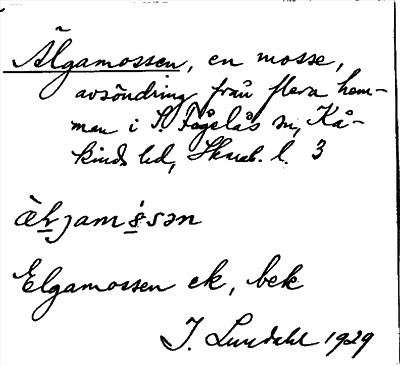 Älgamossen, en mosse,
avsöndring från flera hem-
man i S. Fågelås sn, Kå-
kinds hd, Skarab. l. 3
Elgamossen ek, bek
J. Lundahl 1929